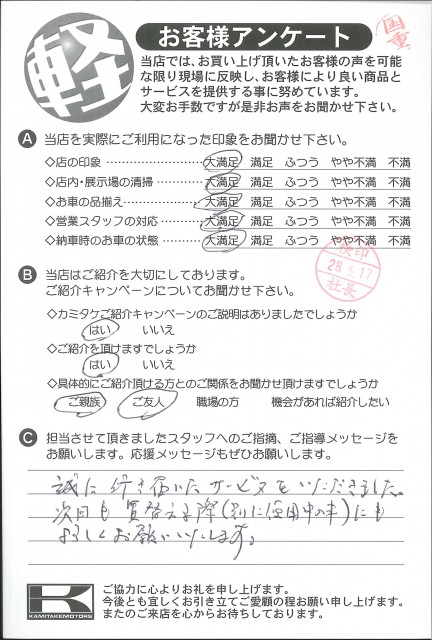 軽
お客様アンケート
国重
当店では、お買い上げ頂いたお客様の声を可能
な限り現場に反映し、お客様により良い商品と
サービスを提供する事に努めています。
大変お手数ですが是非お声をお聞かせ下さい。
A 当店を実際にご利用になった印象をお聞かせ下さい。
◇店の印象 …………………… 大満足 満足 ふつう やや不満 不満
◇店内・展示場の清掃 ………… 大満足 満足 ふつう やや不満 不満
◇お車の品揃え ……………… 大満足 満足 ふつう やや不満 不満
◇営業スタッフの対応 ………… 大満足 満足 ふつう やや不満 不満
◇納車時のお車の状態 ………… 大満足 満足 ふつう やや不満 不満
検印
28.5.17
社長
B 当店はご紹介を大切にしております。
ご紹介キャンペーンについてお聞かせ下さい。
◇カミタケご紹介キャンペーンのご説明はありましたでしょうか
はい いいえ
◇ご紹介を頂けますでしょうか
はい いいえ
◇具体的にご紹介頂ける方とのご関係をお聞かせ頂けますでしょうか
ご親族 ご友人 職場の方 機会があれば紹介したい
C 担当させて頂きましたスタッフへのご指摘、ご指導メッセージを
お願いします。応援メッセージもぜひお願いします。
誠に行き届いたサービスをいただきました。
次回も買替える際(別に使用中の車)にも
よろしくお願いいたします。
K
KAMITAKEMOTORS
ご協力に心よりお礼を申し上げます。
今後とも宜しくお引き立てご愛顧の程お願い申し上げます。
またのご来店を心からお待ちしております。